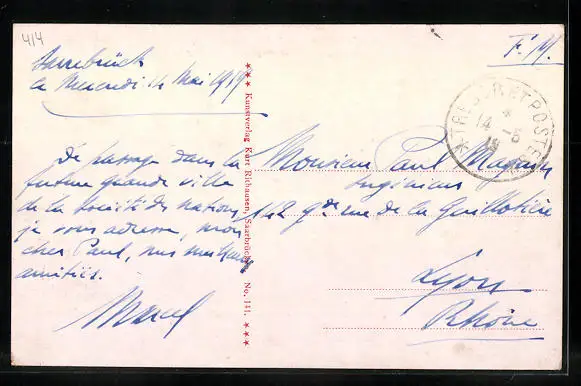 414
Sarrebrück
le Mercredi 14 Mai 1919
De passage dans la
future grande ville
de la Société des Nations
je vous adresse, mon
cher Paul, mes meilleures
amitiés.
Marcel
*** Kunstverlag Kurt Rithausen, Saarbrücken No. 141. ***
F. M.
* TRESOR ET POSTES
*
14 - 5
19
Monsieur Paul Magnin
Ingénieur
142 gde rue de la Guillotière
Lyon
Rhône